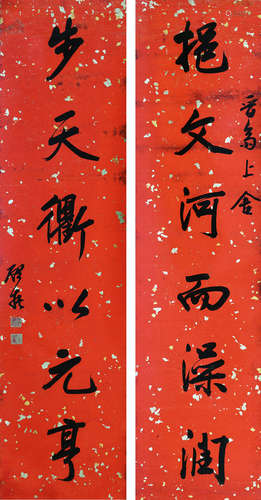 挹文河而澡润
步天衢以元亨
上舍